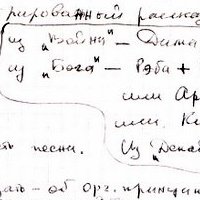 рированный расска
из „Войны" — Дима
из „Бога" — Рэба +
или Ар
или Ки
ть песни.
Из „Декам
дать — об орг. принцип